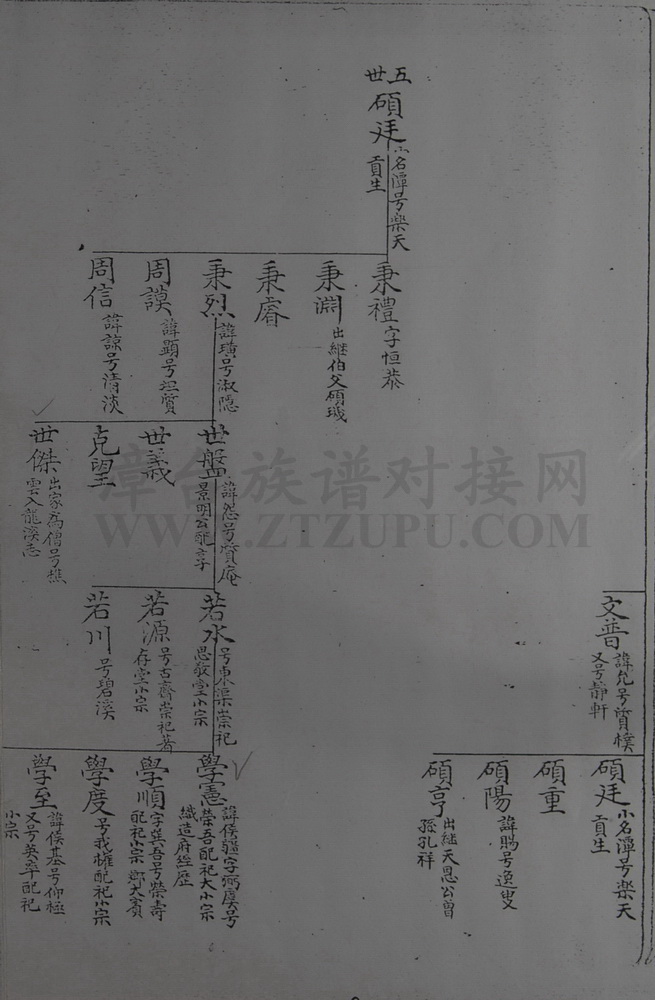 文普
諱允号質樸
又号靜軒
碩廷
小名潭号樂天
貢生
碩重
碩陽
諱賜号逸叟
碩亨
出継天恩公曾
孫孔祥
五世
碩廷
小名潭号樂天
貢生
秉禮
字恒恭
秉淵
出継伯父碩
秉睿
秉烈
諱璜号淑隐
周謨
諱顯号坦質
周信
諱諒号清淡
世盤
号質庵
景明公
世義
克望
世傑
出家為僧号樵
雲入龍溪志
若水
号東渠崇祀
思敬堂小宗
若源
号古齋崇祀著
存堂小宗
若川
号碧溪
學憲
号
榮吾配祀大小宗
織造府經歷
學順
字巽吾号榮壽
配祀小宗鄉大賓
學度
号我權配祀小宗
學至
号仰極
又号英率配祀
小宗
漳台族谱对接网
WWW.ZTZUPU.COM